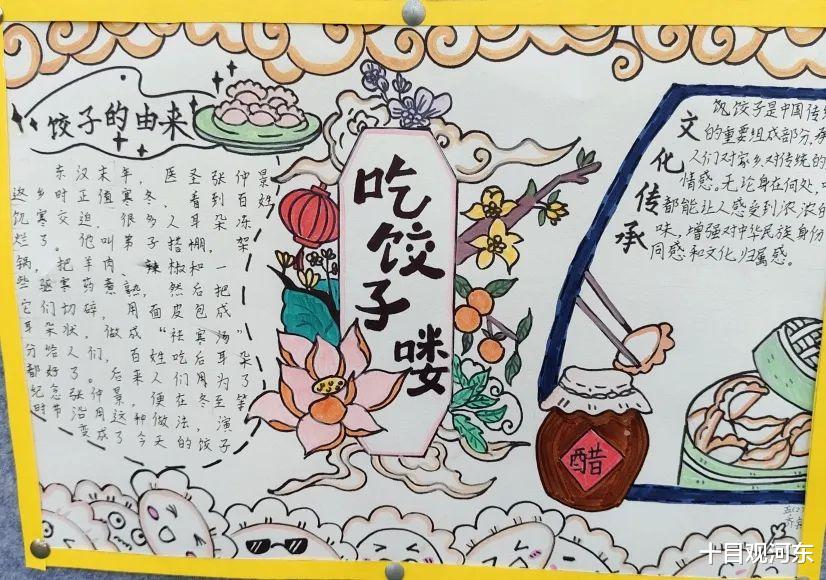 饺子的由来
东汉末年，医圣张仲景
返乡时正值寒冬，看到百姓
饥寒交迫，很多人耳朵冻
烂了。他叫弟子搭棚，架
锅，把羊肉、辣椒和一
些驱寒药煮熟，然后把
它们切碎，用面皮包成
耳朵状，做成“祛寒汤”
分给人们，百姓吃后耳朵
都好了。后来人们用为了
纪念张仲景，便在冬至等
时节沿用这种做法，演
变成了今天的饺子
吃饺子喽
文化传承
饨饺子是中国传
的重要组成部分，承
人们对家乡对传统的
情感。无论身在何处，
都能让人感受到浓浓的
味，增强对中华民族身份
同感和文化归属感。
醋
十目观河东